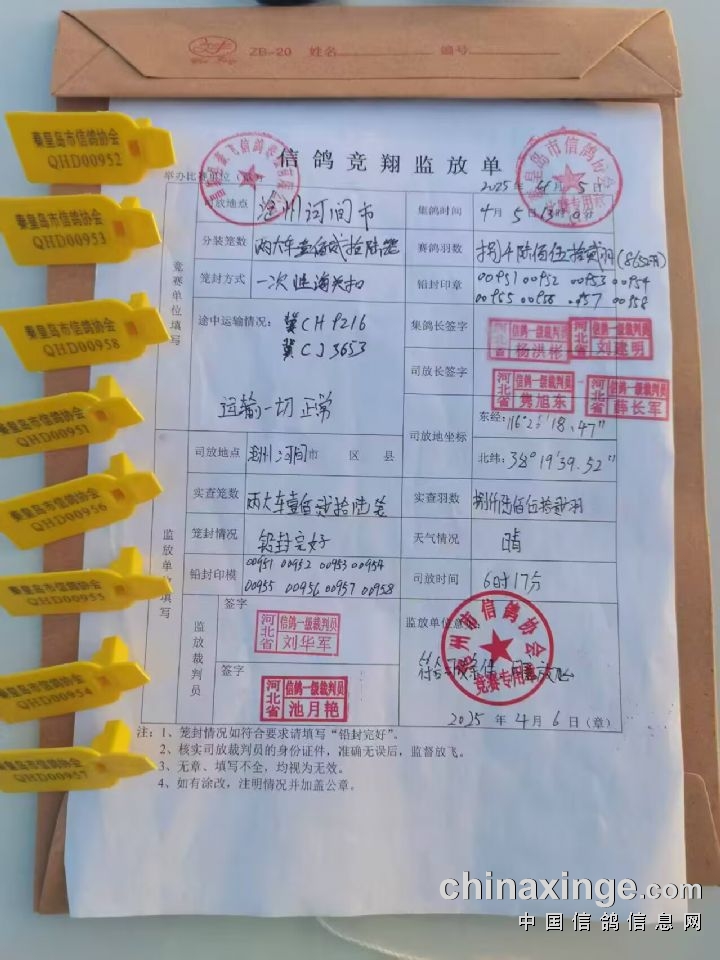 ZB-20 姓名 编号
信鸽竞翔监放单
举办比赛单位（章）
2025年4月5日
竞赛单位填写
司放地点 沧州河间市 集鸽时间 4月5日13时0分
分装笼数 两大车壹佰贰拾陆笼 赛鸽羽数 捌仟陆佰伍拾贰羽(8652羽)
笼封方式 一次性海关扣 铅封印章 00951 00952 00953 00954
00955 00956 00957 00958
途中运输情况： 冀CH9216
冀CJ3653
运输一切正常
集鸽长签字 河北省 信鸽一级裁判员 杨洪彬 河北省 信鸽一级裁判员 刘建明
司放长签字 河北省 信鸽一级裁判员 隽旭东 河北省 信鸽一级裁判员 薛长军
司放地坐标 东经：116° 18.47"
北纬：38°19′39.52"
监放单位填写
司放地点 沧州河间市 区 县
实查笼数 两大车壹佰贰拾陆笼 实查羽数 捌仟陆佰伍拾贰羽
笼封情况 铅封完好 天气情况 晴
铅封印模 00951 00952 00953 00954
00955 00956 00957 00958
司放时间 6时17分
监放裁判员
签字 河北省 信鸽一级裁判员 刘华军
签字 河北省 信鸽一级裁判员 池月艳
监放单位意见：
沧州市信鸽协会
竞赛专用章
2025年4月6日（章）
注：1、笼封情况如符合要求请填写“铅封完好”。
2、核实司放裁判员的身份证件，准确无误后，监督放飞。
3、无章、填写不全，均视为无效。
4、如有涂改，注明情况并加盖公章。
秦皇岛市信鸽协会
QHD00952
秦皇岛市信鸽协会
QHD00953
秦皇岛市信鸽协会
QHD00958
秦皇岛市信鸽协会
QHD00951
秦皇岛市信鸽协会
QHD00956
秦皇岛市信鸽协会
QHD00955
秦皇岛市信鸽协会
QHD00954
秦皇岛市信鸽协会
QHD00957
chinaxinge.com
中国信鸽信息网